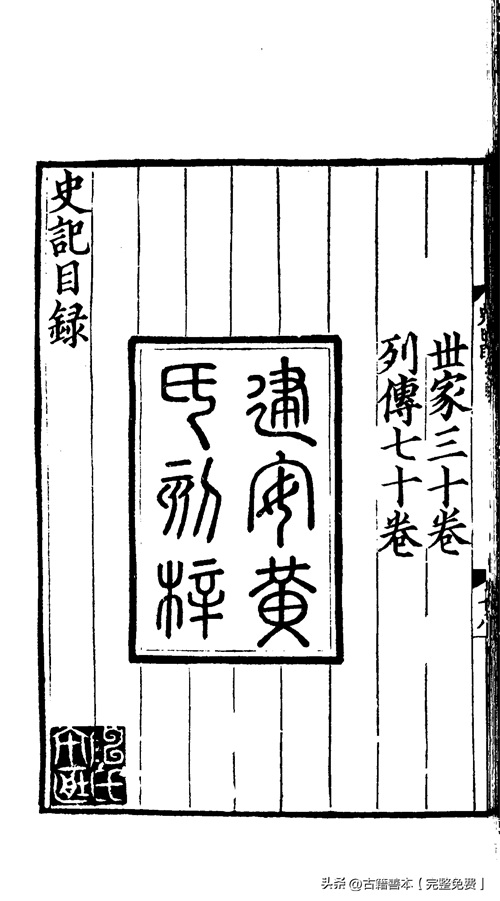 世家三十卷
列傳七十卷
建安黄
氏刻梓
史記目録
头条 @古籍善本【完整免费】